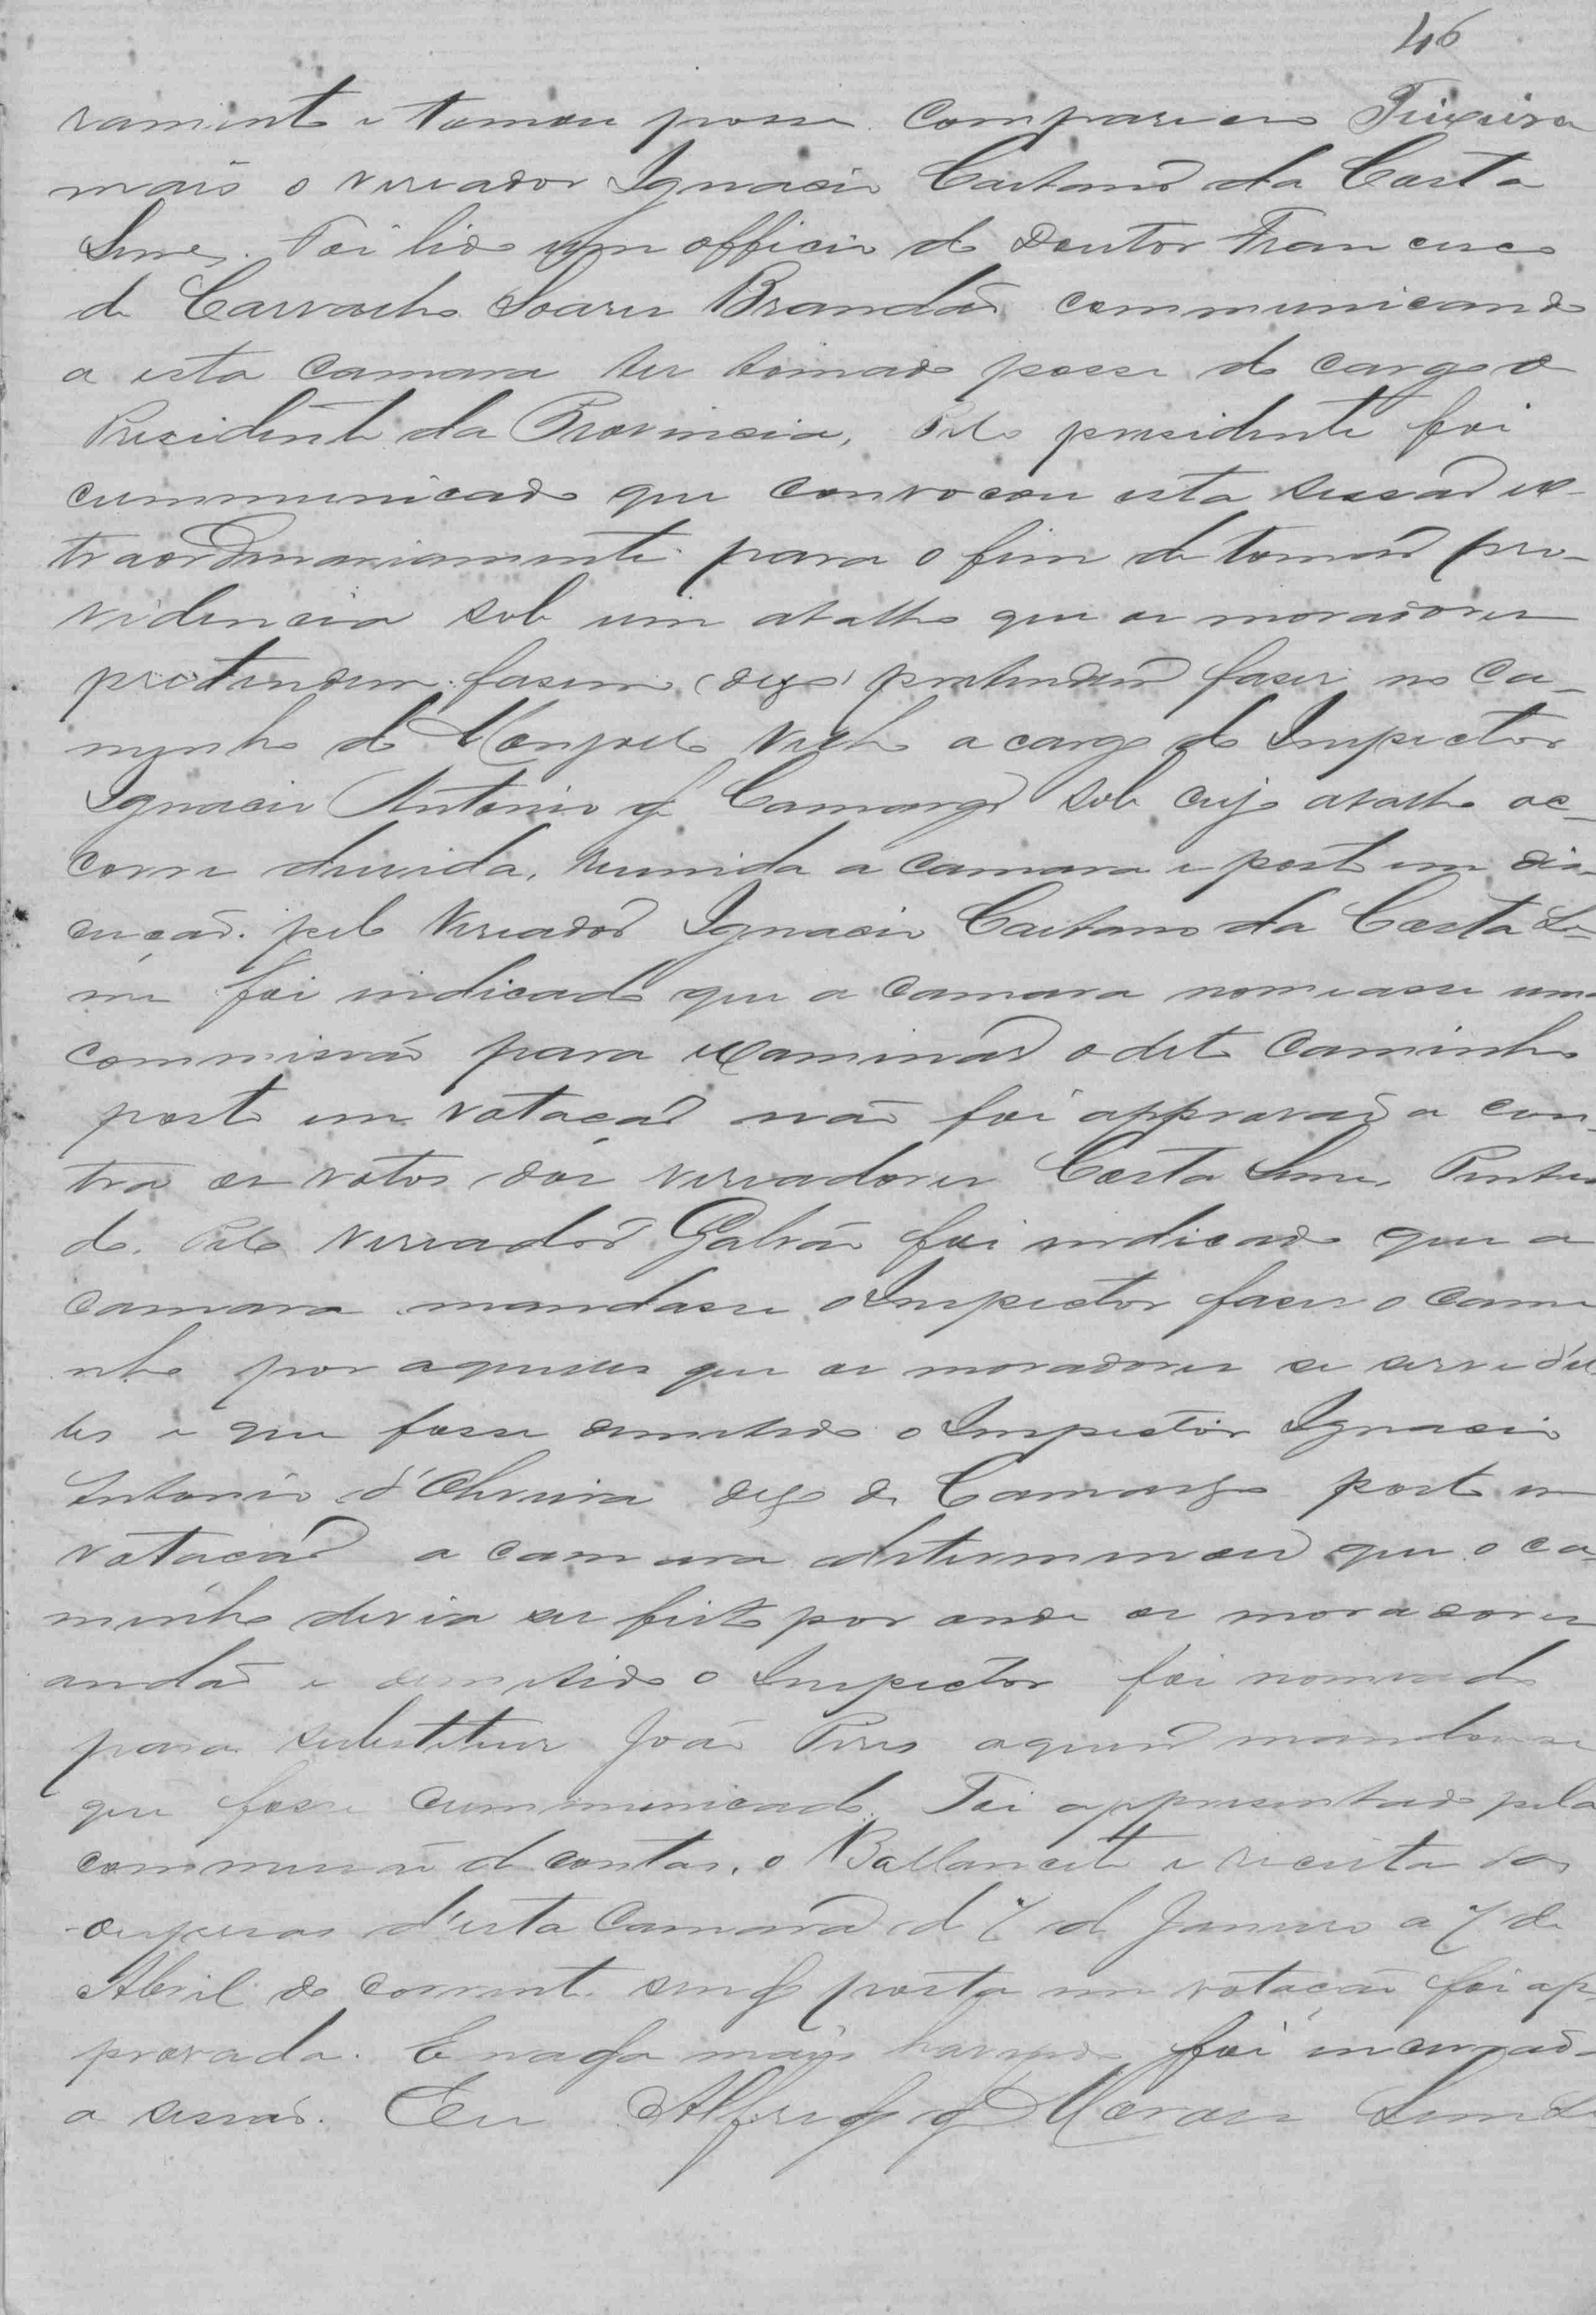 46
ramento e tomou posse compareceo Teixeira
mais o vereador Ignacio Caetano da Costa
Leme. Foi lido um officio do Doutor Francisco
de Carvalho Soares Brandão communicando
a esta camara ter tomado posse do cargo de
Presidente da Provincia, Pelo presidente foi
cummunicado que convocou esta sessão ex-
traordinariamente para o fim de tomar pro-
videncia sob um atalho que os moradores
pretendem fasem, digo, pretendem faser no ca-
minho do Monjolo Velho a cargo do Inspector
Ignacio Antonio de Camargo sob cujo atalho oc-
corre duvida, reunida a camara e posto em dis-
cução. pelo Vereador Ignacio Caetano da Costa Le-
me foi indicado que a camara nomeasse uma
commissão para examinar o dito caminho
posto em votação não foi approvada con-
tra os votos dos vereadores Costa Leme, Pentea-
do. Pelo vereador Galvão foi indicado que a
camara mandasse o Inspector faser o cami
nho por aquelles que os moradores se serve d'el
les e que fosse demetido o Inspector Ignacio
Antonio d'Oliveira digo de Camargo posto em
votação a camara determinou que o ca
minho devia ser feito por onde os moradores
andão e demetido o Inspector foi nomeado
para substituir João Pires aquem mandou se
que fosse cummunicado. Foi appresentado pela
commissão de contas, o Ballancete e receita das
despesas d'esta Camara de 7 de Janeiro a 7 de
Abril do corrente sendo posta em votação foi ap-
provada. E nada mais havendo foi incerrado
a sessão. Eu Alfredo de Moraes Leme Se